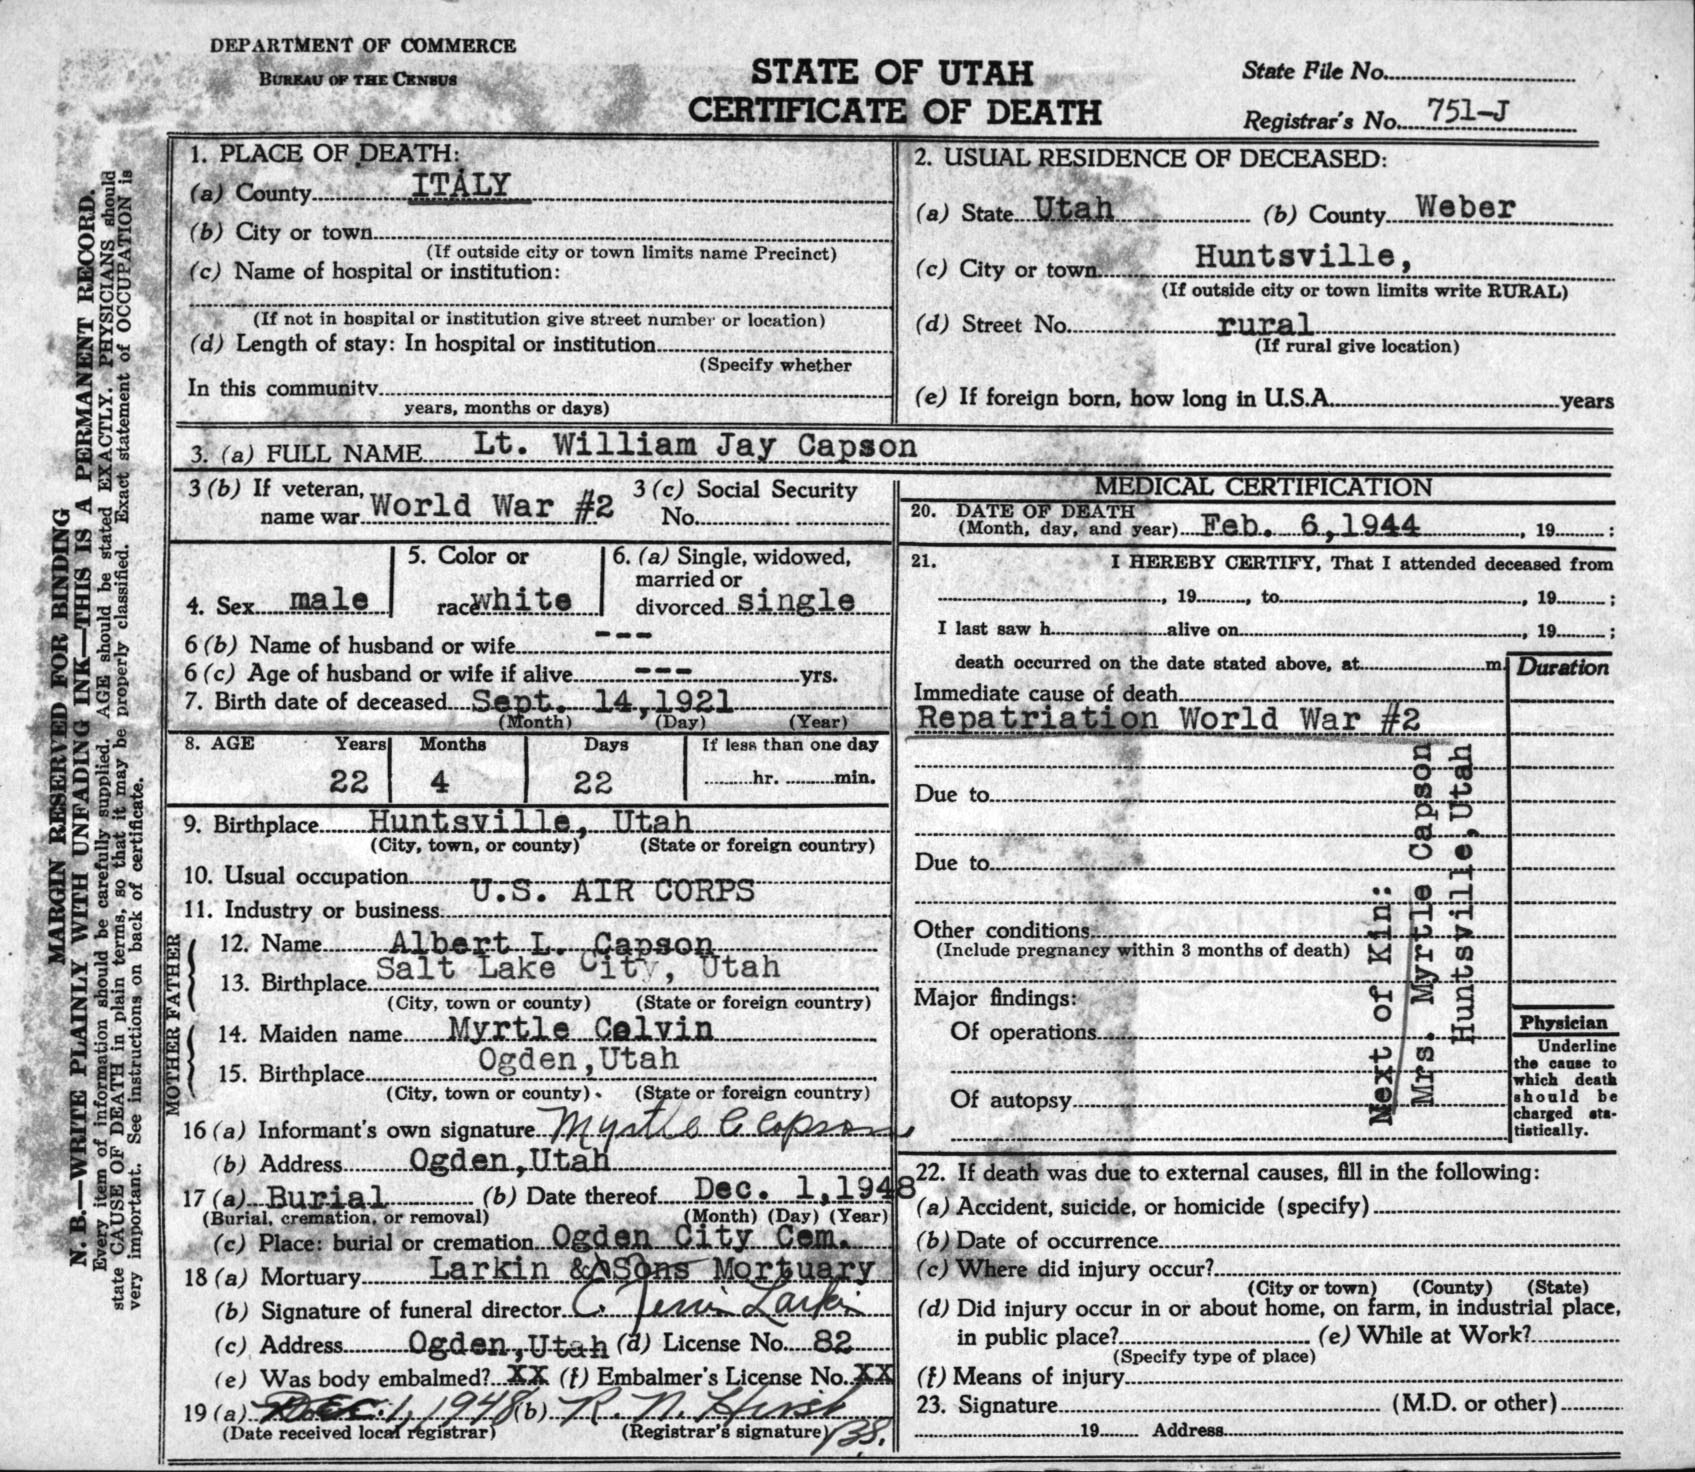 DEPARTMENT OF COMMERCE
BUREAU OF THE CENSUS
STATE OF UTAH
CERTIFICATE OF DEATH
State File No.
Registrar's No. 751-J
MARGIN RESERVED FOR BINDING
N. B.—WRITE PLAINLY WITH UNFADING INK—THIS IS A PERMANENT RECORD.
Every item of information should be carefully supplied. AGE should be stated EXACTLY. PHYSICIANS should
state CAUSE OF DEATH in plain terms, so that it may be properly classified. Exact statement of OCCUPATION is
very important. See instructions on back of certificate.
1. PLACE OF DEATH:
(a) County ITALY
(b) City or town
(If outside city or town limits name Precinct)
(c) Name of hospital or institution:
(If not in hospital or institution give street number or location)
(d) Length of stay: In hospital or institution
(Specify whether
In this community
years, months or days)
2. USUAL RESIDENCE OF DECEASED:
(a) State Utah (b) County Weber
(c) City or town Huntsville,
(If outside city or town limits write RURAL)
(d) Street No. rural
(If rural give location)
(e) If foreign born, how long in U.S.A. years
3. (a) FULL NAME Lt. William Jay Capson
3 (b) If veteran,
name war World War #2
3 (c) Social Security
No.
4. Sex male
5. Color or
race white
6. (a) Single, widowed,
married or
divorced single
6 (b) Name of husband or wife ---
6 (c) Age of husband or wife if alive --- yrs.
7. Birth date of deceased Sept. 14,1921
(Month) (Day) (Year)
8. AGE Years Months Days If less than one day
22 4 22 hr. min.
9. Birthplace Huntsville, Utah
(City, town, or county) (State or foreign country)
10. Usual occupation
U.S. AIR CORPS
11. Industry or business
FATHER
12. Name Albert L. Capson
13. Birthplace Salt Lake City, Utah
(City, town or county) (State or foreign country)
MOTHER
14. Maiden name Myrtle Colvin
15. Birthplace Ogden,Utah
(City, town or county) (State or foreign country)
16 (a) Informant's own signature Myrtle C Capson
(b) Address Ogden,Utah
17 (a) Burial (b) Date thereof Dec. 1,1948
(Burial, cremation, or removal) (Month) (Day) (Year)
(c) Place: burial or cremation Ogden City Cem.
18 (a) Mortuary Larkin & Sons Mortuary
(b) Signature of funeral director Larkin
(c) Address Ogden,Utah (d) License No. 82
(e) Was body embalmed? XX (f) Embalmer's License No. XX
19 (a) Dec. 1, 1948 (b) R. N. Hirst
(Date received local registrar) (Registrar's signature)
MEDICAL CERTIFICATION
20. DATE OF DEATH
(Month, day, and year) Feb. 6,1944 , 19 ;
21. I HEREBY CERTIFY, That I attended deceased from
, 19 , to , 19 ;
I last saw h alive on , 19 ;
death occurred on the date stated above, at m.
Duration
Immediate cause of death
Repatriation World War #2
Due to
Due to
Other conditions
(Include pregnancy within 3 months of death)
Major findings:
Of operations
Of autopsy
Next of Kin:
Mrs. Myrtle Capson
Huntsville,Utah
Physician
Underline
the cause to
which death
should be
charged sta-
tistically.
22. If death was due to external causes, fill in the following:
(a) Accident, suicide, or homicide (specify)
(b) Date of occurrence
(c) Where did injury occur?
(City or town) (County) (State)
(d) Did injury occur in or about home, on farm, in industrial place,
in public place? (e) While at Work?
(Specify type of place)
(f) Means of injury
23. Signature (M.D. or other)
19 Address